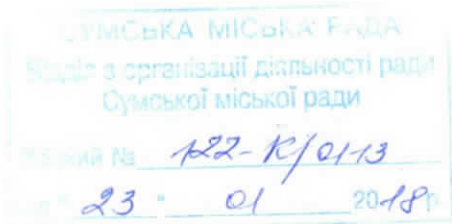 СУМСЬКА МІСЬКА РАДА
Відділ з організації діяльності ради
Сумської міської ради
№ 122-К/01-13
"23" 01 2018р